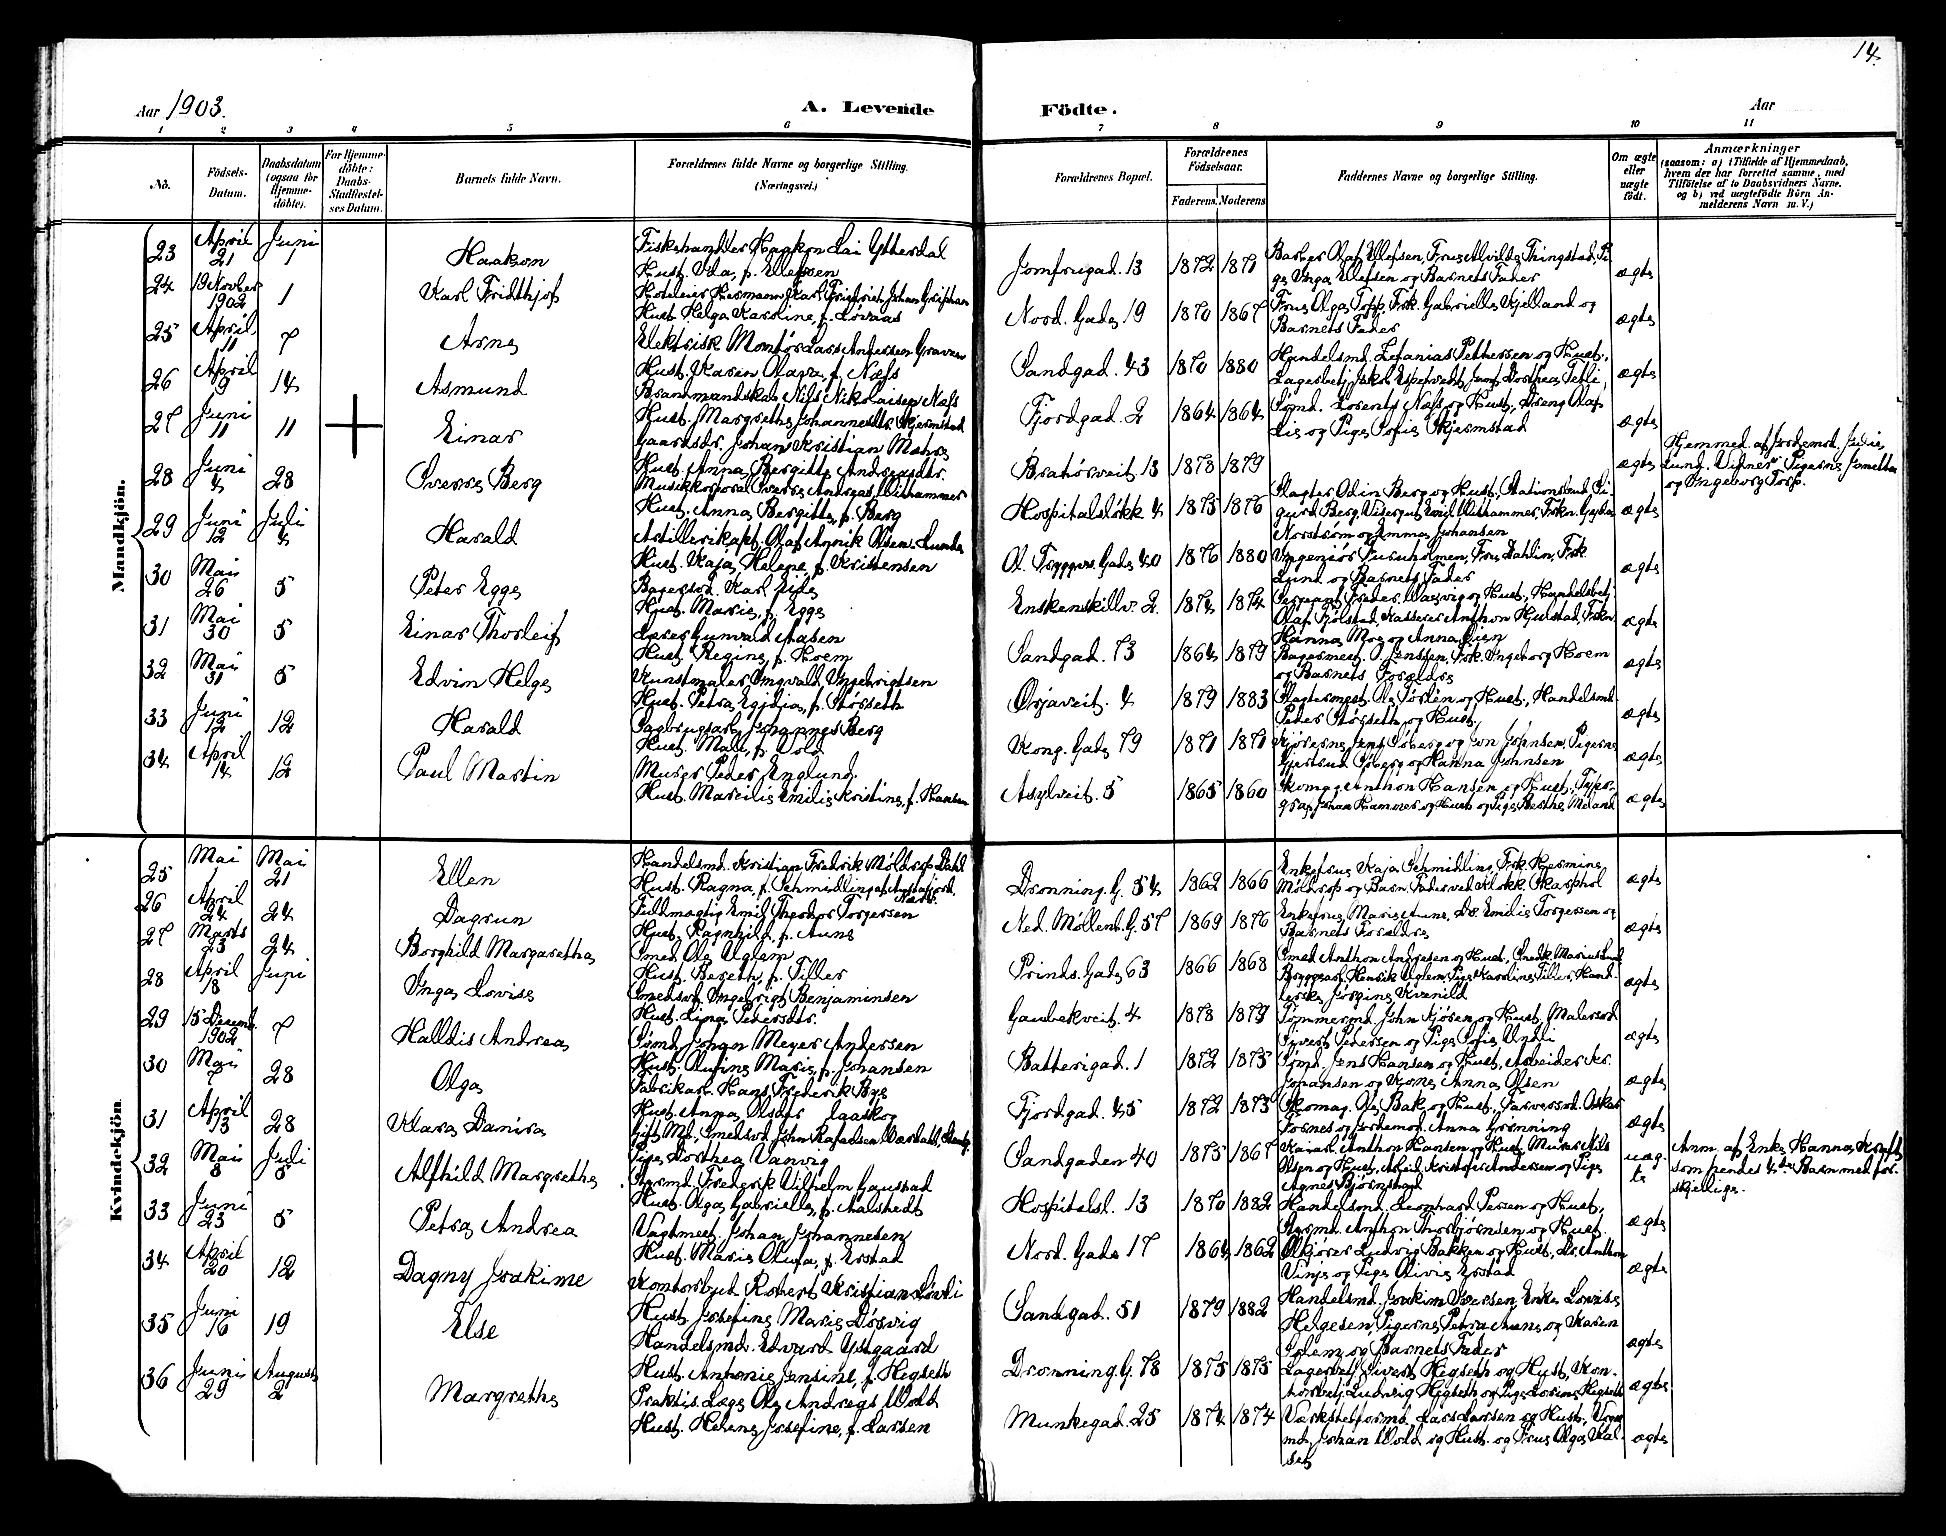 14.
Aar 1903.
A. Levende Födte.
Aar
1 2 3 4 5 6 7 8 9 10 11
No.
Födsels-Datum.
Daabsdatum (ogsaa for Hjemme-döbte).
For Hjemme-döbte: Daabs-Stadfæstel-ses Datum.
Barnets fulde Navn.
Forældrenes fulde Navne og borgerlige Stilling. (Næringsvei.)
Forældrenes Bopæl.
Forældrenes Födselsaar.
Faderens. Moderens.
Faddernes Navne og borgerlige Stilling.
Om ægte eller uægte födt.
Anmærkninger
(saasom: a) i Tilfælde af Hjemmedaab, hvem der har forrettet samme, med Tilföielse af to Daabsvidners Navne. og b) ved uægtefödte Börn An-melderens Navn m. V.)
Mandkjön.
23 April 21 Juni 1 Haakon
Fiskehandler Haakon Lai Ytterdal
Hust. Uda, f. Ellefsen
Jomfrugad. 13 1872 1871
Barber Olaf Ellefsen, Frue Alvilde Thingstad, Pi-
ge Ynga Ellefsen og Barnets Fader
ægte
24 19 Novber 1902 1 Karl Fridthjof
Hust. Helga Karoline, f. Lovaas
Nord. Gade 19 1870 1867
Frue Olga Topp, Frk. Gabrielle Kjelland og
Barnets Fader
ægte
25 April 11 7 Arne
Elektrisk Montør Lars Andersen Graven
Hust. Karen Olava, f. Næss
Sandgad. 43 1870 1880
Handelsmd. Zefanias Pettersen og Hust.,
ægte
26 April 9 14 Asmund
Brandmandskab Nils Nikolaisen Næss
Hust. Margrethe Johannesdtr. Skjermstad
Fjordgad. 2 1864 1864
Sømd. Lorents Næss og Hust., Dreng Olaf
Lie og Pige Sofie Skjermstad
ægte
27 Juni 11 11 Einar
Gaardsdr. Johan Kristian Mehre
Hust. Anna Bergitte Andreasdtr.
Bratørveit. 13 1878 1879
ægte
Hjemmed. af Jordemod. Julie
Lund. Vidner: Pigerne Jonetta
og Ingeborg Torp.
28 Juni 4 28 Sverre Berg
Musikkorporal Sverre Andreas Withammer
Hust. Anna Bergitte, f. Berg
Hospitalsløkk. 4 1875 1876
Slagter Odin Berg og Hust., Stationsbud Si-
gurd Berg, Visergut Emil Withammer, Frkn. Gyda
Norstrøm og Emma Johansen
ægte
29 Juni 12 Juli 4 Harald
Artillerikapt. Olaf Annik Olsen Lunde
Hust. Kaja Helene, f. Kristensen
Ol. Tryggvs. Gade 40 1876 1880
Yngeniør Furuholmen, Frue Dahlin, Frk.
Lund og Barnets Fader
ægte
30 Mai 26 5 Peter Egge
Bagersvd. Karl Eide
Hust. Marie, f. Egge
Enskenskillv. 2 1874 1874
Olaf Fjølstad, Kasserer Anthon Hjulstad, Frkn.
Hanna Moe og Anna Lien
ægte
31 Mai 30 5 Einar Thorleif
Lærer Gunvald Aasen
Hust. Regine, f. Hoem
Sandgad. 73 1864 1879
Bagermest. O. Jenssen, Frk. Yngeborg Hoem
og Barnets Forældre
ægte
32 Mai 31 5 Edvin Helge
Kunstmaler Yngvald Yngebrigtsen
Hust. Petra Egidia, f. Størseth
Ørjaveit. 4 1879 1883
Slagtermest. Ole Sørlén og Hust., Handelsmd.
Peder Størseth og Hust.
ægte
33 Juni 12 12 Harald
Sagbrugsarb. Johannes Berg
Hust. Mali, f. Vold
Kong. Gade 79 1871 1871
Kjørerne Jens Soberg og Jon Johnsen, Pigerne
Gjertrud Soberg og Hanna Johnsen
ægte
34 April 14 12 Paul Martin
Murer Peder Englund.
Hust. Marcilie Emilie Kristine, f. Hansen
Asylveit. 5 1865 1860
Skomager Anthon Hansen og Hust., Typo-
graf Johan Hammer og Hust. og Pige Berthe Meland
ægte
Kvindekjön
25 Mai 1 Mai 21 Ellen
Handelsmd. Kristian Fredrik Møldrup Dahl
Hust. Ragna, f. Schmidling
Dronning. G. 54 1862 1866
Enkefrue Kaja Schmidling, Frk. Hermine
Møldrup og Barn. Fader ved Klokk. Skarphol
ægte
26 April 24 24 Dagrun
Fuldmægtig Emil Theodor Torgersen
Hust. Ragnhild, f. Aune
Ned. Møllenb. G. 57 1869 1876
Enkefrue Marie Aune, Do. Emilie Torgersen og
Barnets Forældre
ægte
27 Marts 23 24 Borghild Margarethe
Smed Ole Uglem
Hust. Bereth, f. Tiller
Prinds. Gade 63 1866 1868
Smed Anthon Andresen og Hust., Snedk. Marius Lund
Bryggearb. Henrik Uglem, Pige Karoline Tiller, Hand-
lerske Jørgine Kvenild
ægte
28 April 18 Juni 1 Inga Lovise
Smedsvd. Yngebrigt Benjaminsen
Hust. Lina Pedersdtr.
Gaubekveit. 4 1878 1879
Tømmermd. John Fjøsen og Hust., Malersvd.
Syvert Pedersen og Pige Sofie Undli
ægte
29 15 Decemb. 1902 7 Halldis Andrea
Sømd. Johan Meyer Andersen
Hust. Olufine Marie, f. Johansen
Batterigad. 1 1872 1875
Sømd. Jens Hansen og Hust., Arbeider Kr.
Johansen og Kone Anna Olsen
ægte
30 Mai 7 28 Olga
Fabrikarb. Hans Frederik Bye
Hust. Anna Olsdtr. Laaskog
Fjordgad. 45 1872 1873
Skomag. Ole Bak og Hust., Farversvd. Oskar
Fosnes og Jordemod. Anna Grønning
ægte
31 April 13 28 Klara Danira
Pige Dorthea Vanvig
Sandgaden 40 1875 1867
Olsen og Hust., Arbeid. Kristofer Andersen og Pige
Agnes Bjørnstad
uæg-
te
Anm. af Enke Hanna Kroglh,
som hendes 4de Barn med for-
skjellige.
32 Mai 8 Juli 5 Alfhild Margrethe
Styrmd. Frederik Vilhelm Gaustad
Hust. Olga Gabrielle, f. Aalstedt
Hospitalsl. 13 1870 1882
Handelsmd. Leonhard Persen og Hust.,
Styrmd. Anthon Thorbjørnsen og Hust.
ægte
33 Juni 23 5 Petra Andrea
Vagtmest. Johan Johannesen
Hust. Marie Olufa, f. Erstad
Nord. Gade 17 1864 1862
Ølkjører Ludvig Bakken og Hust., Do. Anthon
Vinje og Pige Olivie Erstad
ægte
34 April 20 12 Dagny Joakime
Kontorbud Robert Kristian Lundli
Hust. Josefine Marie Døsvig
Sandgad. 51 1879 1882
Handelsmd. Joakim Iversen, Enke Lovise
Helgesen, Pigerne Petra Aune og Karen
Solem og Barnets Fader
ægte
35 Juni 16 19 Else
Handelsmd. Edvard Ystgaard
Hust. Antonie Jensine, f. Hegseth
Dronning. G. 78 1875 1875
Lagerbetj. Sivert Hegseth og Hust., Kon-
torbetj. Ludvig Hegseth og Pige Lorine Hegseth
ægte
36 Juni 29 August 2 Margrethe
Praktis. Læge Ole Andreas Wold
Hust. Helene Josefine, f. Larsen
Munkegad. 25 1874 1874
Værkstedformd. Lars Larsen og Hust.,
md. Johan Wold og Hust. og Frue Olga Hal-
set
ægte